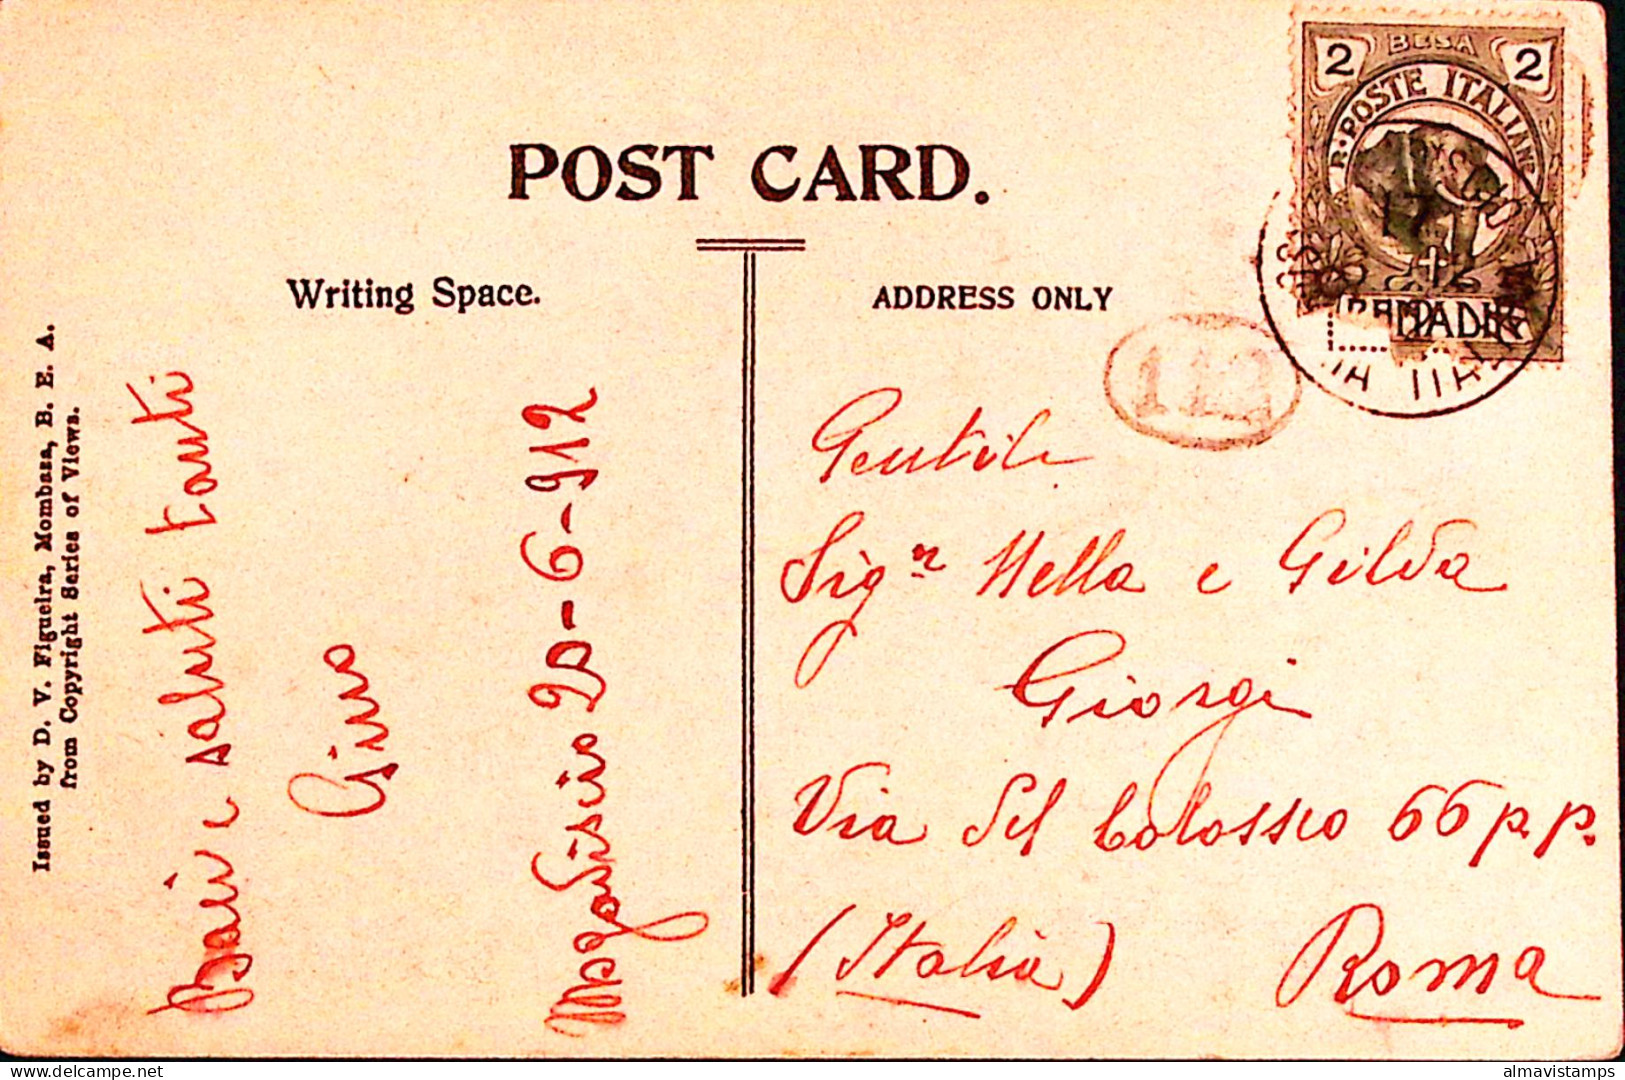 POST CARD.
Writing Space.
ADDRESS ONLY
Issued by D. V. Figueira, Mombasa, B. E. A.
from Copyright Series of Views.
Baci e saluti tanti
Gino
Mogadiscio 20-6-912
Gentili
Sig.ne Nella e Gilda
Giorgi
Via del Colosseo 66 p.p.
(Italia) Roma
2 BESA 2
R. POSTE ITALIANE
112
almavistamps